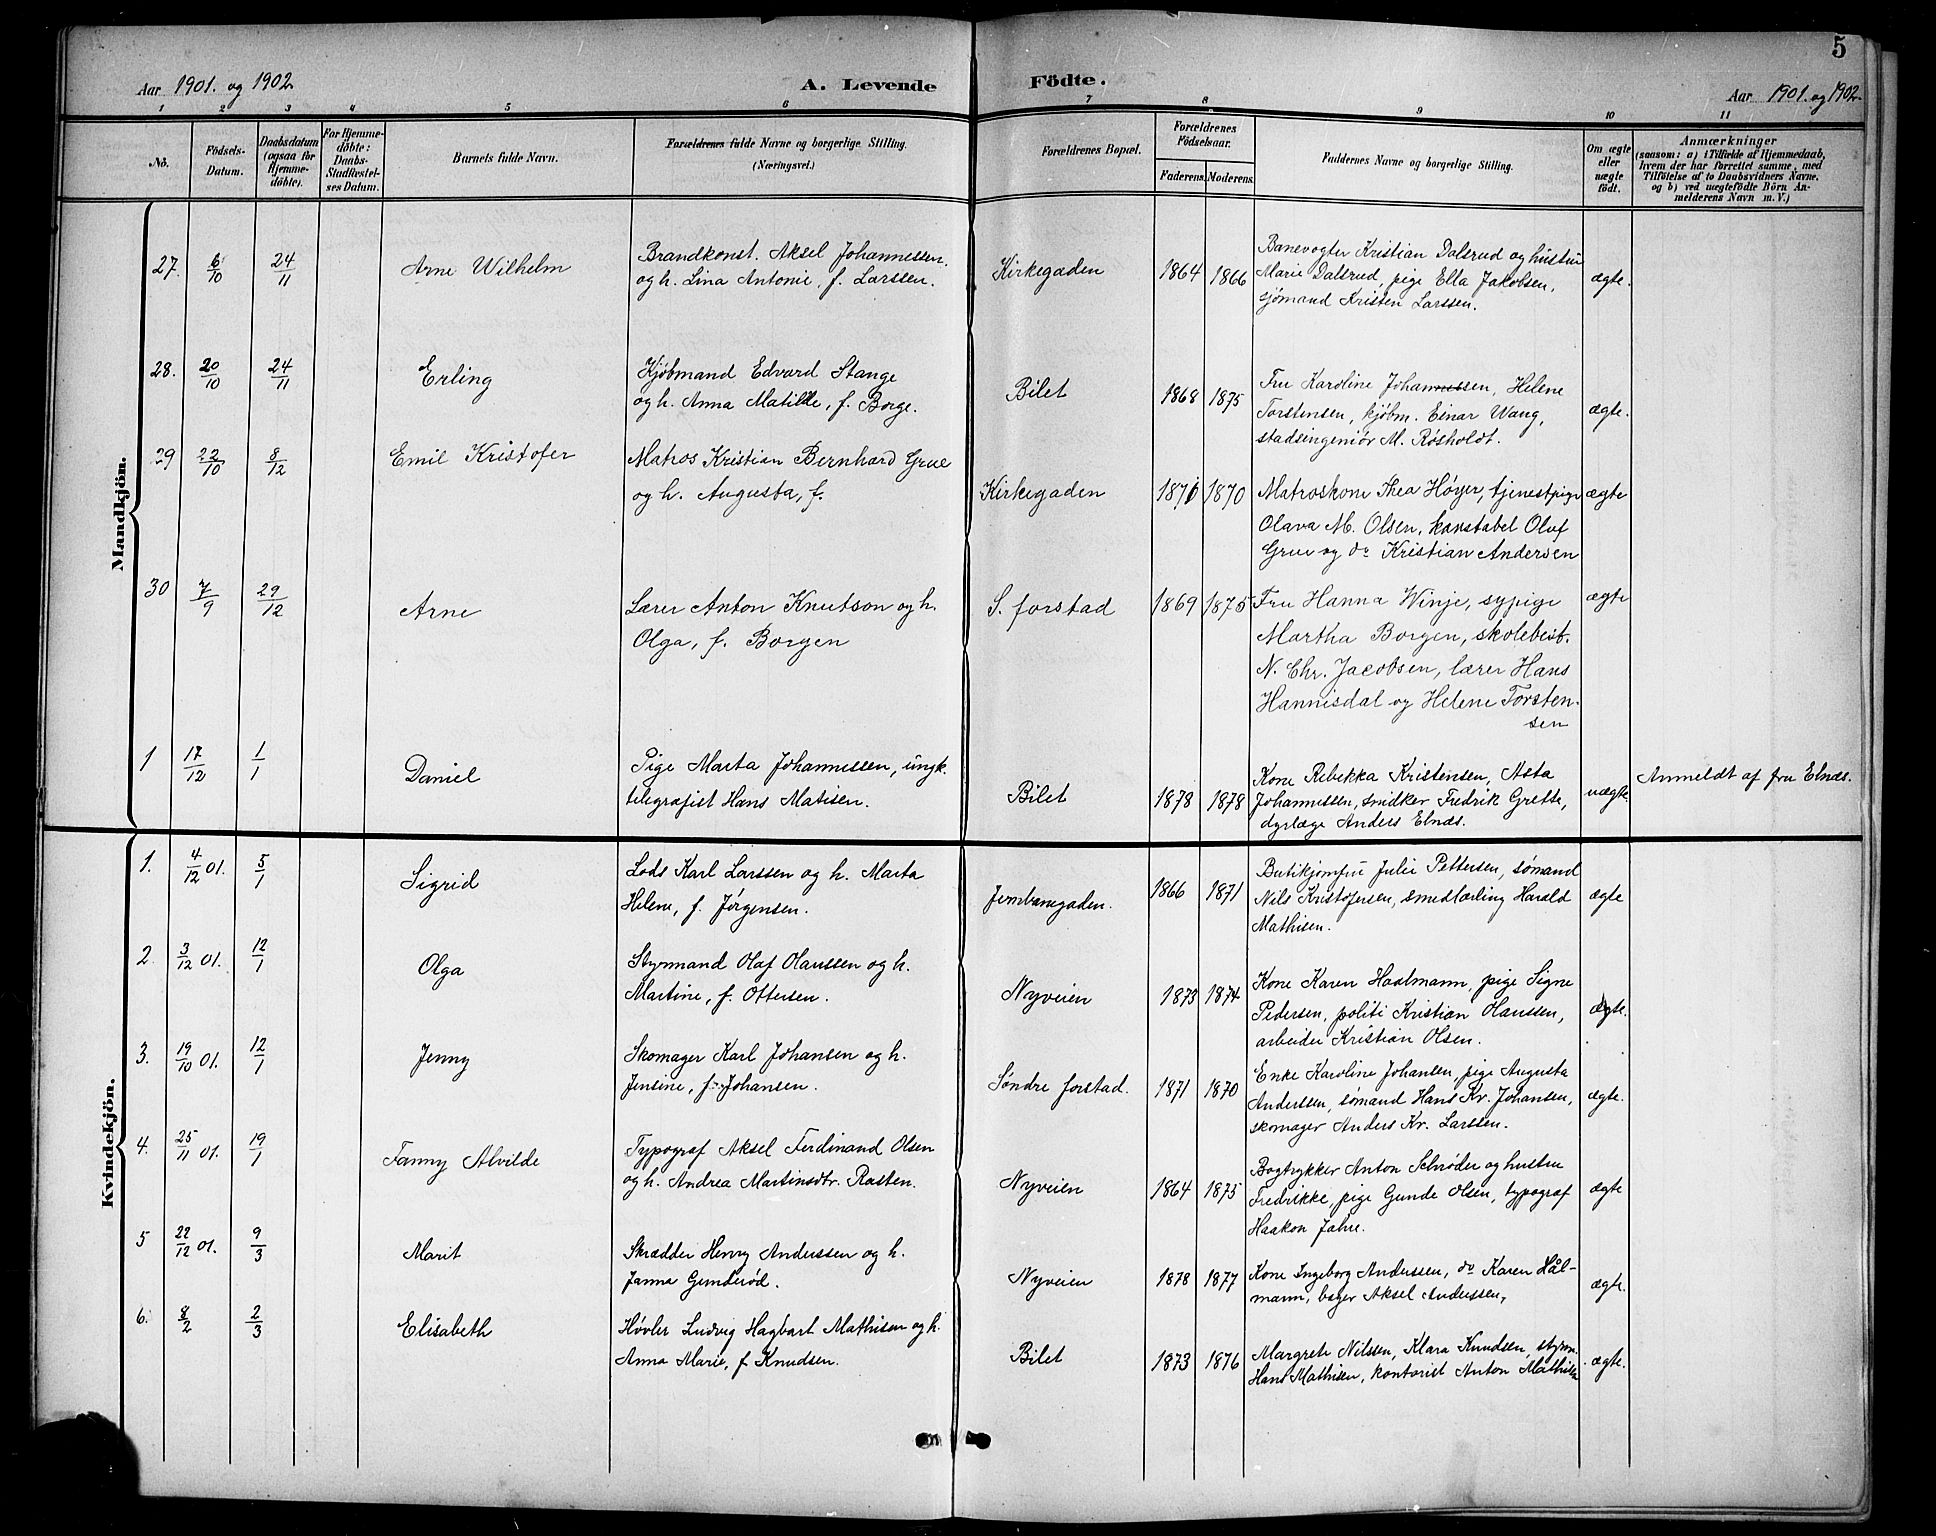 5
Aar 1901. og 1902.
A. Levende Födte.
Aar 1901. og 1902.
1 2 3 4 5 6 7 8 9 10 11
No.
Födsels-
Datum.
Daabsdatum
(ogsaa for
Hjemme-
döbte).
For Hjemme-
döbte:
Daabs-
Stadfæstel-
ses Datum.
Barnets fulde Navn.
Forældrenes fulde Navne og borgerlige Stilling.
(Næringsvei.)
Forældrenes Bopæl.
Forældrenes
Födselsaar.
Faderens. Moderens.
Faddernes Navne og borgerlige Stilling.
Om ægte
eller
uægte
födt.
Anmærkninger
(saasom: a) i Tilfælde af Hjemmedaab,
hvem der har forrettet samme, med
Tilföielse af to Daabsvidners Navne.
og b) ved uægtefödte Börn An-
melderens Navn m. V.)
Mandkjön.
27. 6/10 24/11 Arne Wilhelm
Brandkonst. Aksel Johannessen.
og h. Lina Antonie, f. Larssen.
Kirkegaden 1864 1866
Banevogter Kristian Dalsrud og hustru
Marie Dalsrud, pige Ella Jakobsen,
sjömand Kristen Larssen.
ægte.
28. 20/10 24/11 Erling
Kjøbmand Edvard Stange
og h. Anna Matilde, f. Borge.
Bilet 1868 1875
Fru Karoline Johannessen, Helene
Torstensen, kjøbm. Einar Wang,
stadsingeniör M. Røsholdt.
ægte.
29 22/10 8/12 Emil Kristofer
Matros Kristian Bernhard Grue
og h. Augusta, f.
Kirkegaden 1876 1870
Matroskone Thea Høyer, tjenestpige
Olava M. Olsen, konstabel Oluf
Grue og do Kristian Andersen
ægte
30 7/9 29/12 Arne
Lærer Anton Knutson og h.
Olga, f. Borgen
S. forstad 1869 1875
Fru Hanna Winje, sypige
Martha Borgen, skolebest.
N. Chr. Jacobsen, lærer Hans
Hannisdal og Helene Torsten-
sen
ægte
1 17/12 1/1 Daniel
Pige Marta Johannessen, ungk.
telegrafist Hans Matisen.
Bilet 1878 1878
Kone Rebekka Kristensen, Asta
Johannessen, snidker Fredrik Grette,
dyrlæge Anders Elnæs.
uægte.
Anmeldt af fru Elnæs.
Kvindekjön.
1. 4/12 01. 5/1 Sigrid
Lods Karl Larssen og h. Marta
Helene, f. Jörgensen.
Jernbanegaden. 1866 1871
Butikjomfru Julie Pettersen, sømand
Nils Kristofersen, smedlærling Harald
Mathisen.
ægte
2. 3/12 01. 12/1 Olga
Styrmand Olaf Hanssen og h.
Martine, f. Ottersen.
Nyveien 1873 1874
Kone Karen Haalmann, pige Signe
Pedersen, politi Kristian Hanssen,
arbeider Kristian Olsen.
ægte.
3. 19/10 01. 12/1 Jenny
Skomager Karl Johansen og h.
Jensine, f. Johansen.
Søndre forstad. 1871 1870
Enke Karoline Johansen, pige Augusta
Anderssen, sømand Hans Kr. Johansen,
skomager Anders Kr. Larssen.
ægte.
4. 25/11 01. 19/1 Fanny Alvilde
Typograf Aksel Ferdinand Olsen
og h. Andrea Martinsdtr. Rasten.
Nyveien 1864 1875
Bogtrykker Anton Schrøder og hustru
Fredrikke, pige Gunde Olsen, typograf
Haakon Jahre.
ægte
5 22/12 01. 9/3 Marit
Skrædder Henry Anderssen og h.
Janna Gunderöd.
Nyveien 1878 1877
Kone Ingeborg Anderssen, do Karen Hål-
mann, bager Aksel Anderssen,
ægte.
6. 8/2 2/3 Elisabeth
Høvler Ludvig Hagbart Mathisen og h.
Anna Marie, f. Knudsen.
Bilet 1873 1876
Margrete Nilssen, Klara Knudsen, styrm.
Hans Mathisen, kontorist Anton Mathisen
ægte.